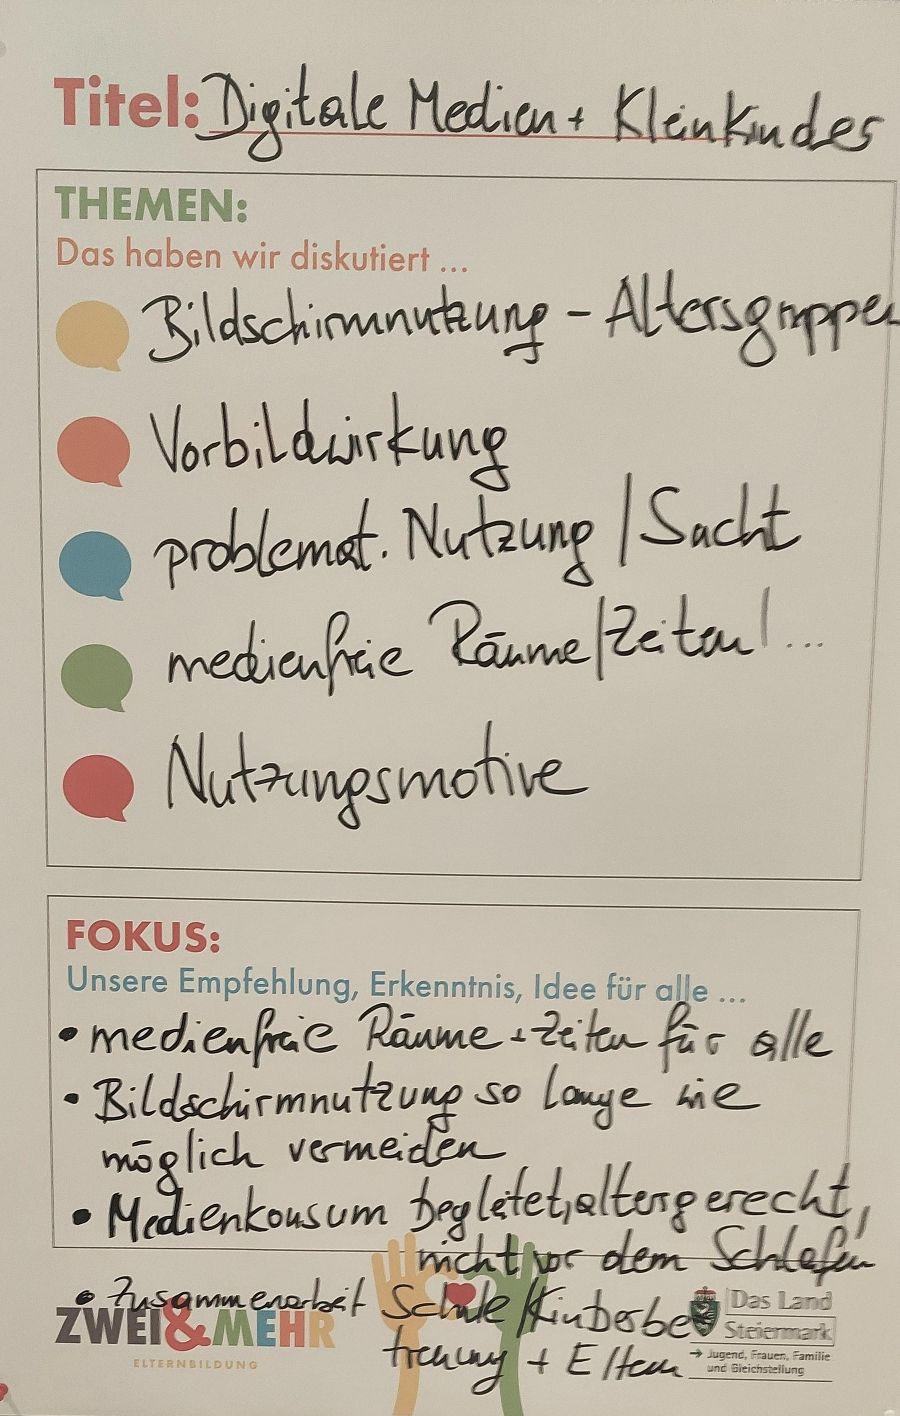 Titel: Digitale Medien + Kleinkinder
THEMEN:
Das haben wir diskutiert ...
Bildschirmnutzung - Altersgruppen
Vorbildwirkung
problemat. Nutzung / Sucht
medienfreie Räume/Zeiten/...
Nutzungsmotive
FOKUS:
Unsere Empfehlung, Erkenntnis, Idee für alle ...
• medienfreie Räume + Zeiten für alle
• Bildschirmnutzung so lange wie
möglich vermeiden
• Medienkonsum begleitet, altersgerecht,
nicht vor dem Schlafen
• Zusammenarbeit Schule/Kinderbe
treuung + Eltern
ZWEI&MEHR
ELTERNBILDUNG
Das Land
Steiermark
→ Jugend, Frauen, Familie
und Gleichstellung